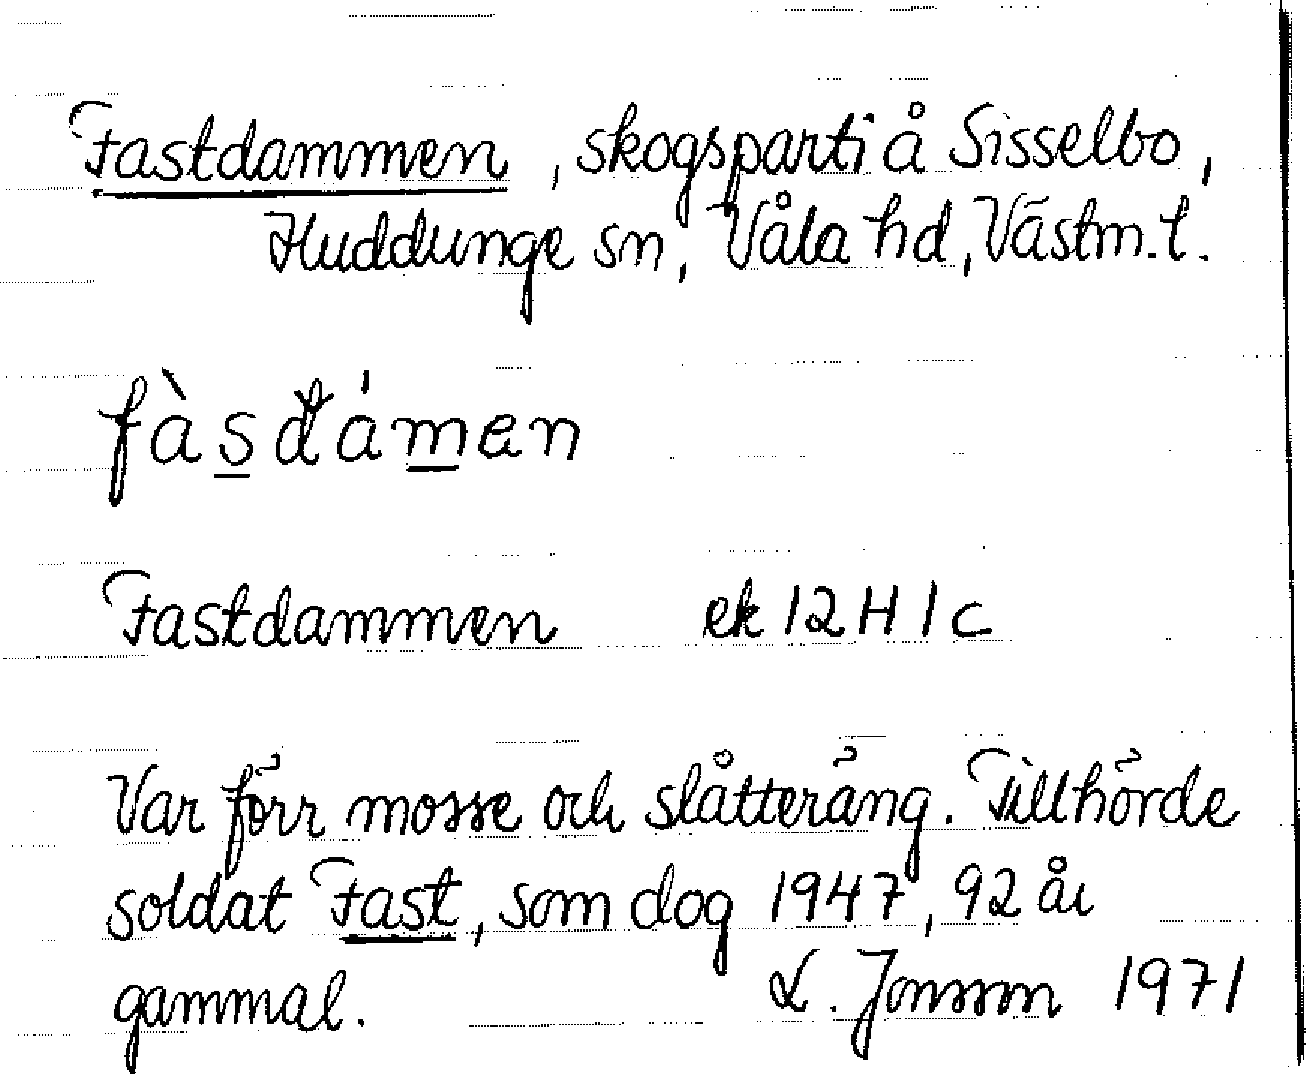 Fastdammen, skogsparti å Sisselbo,
Huddunge sn, Våla hd, Västm.l.
fàsdámen
Fastdammen ek 12H 1c
Var förr mosse och slåtteräng. Tillhörde
soldat Fast, som dog 1947, 92 år
gammal. L. Jonsson 1971